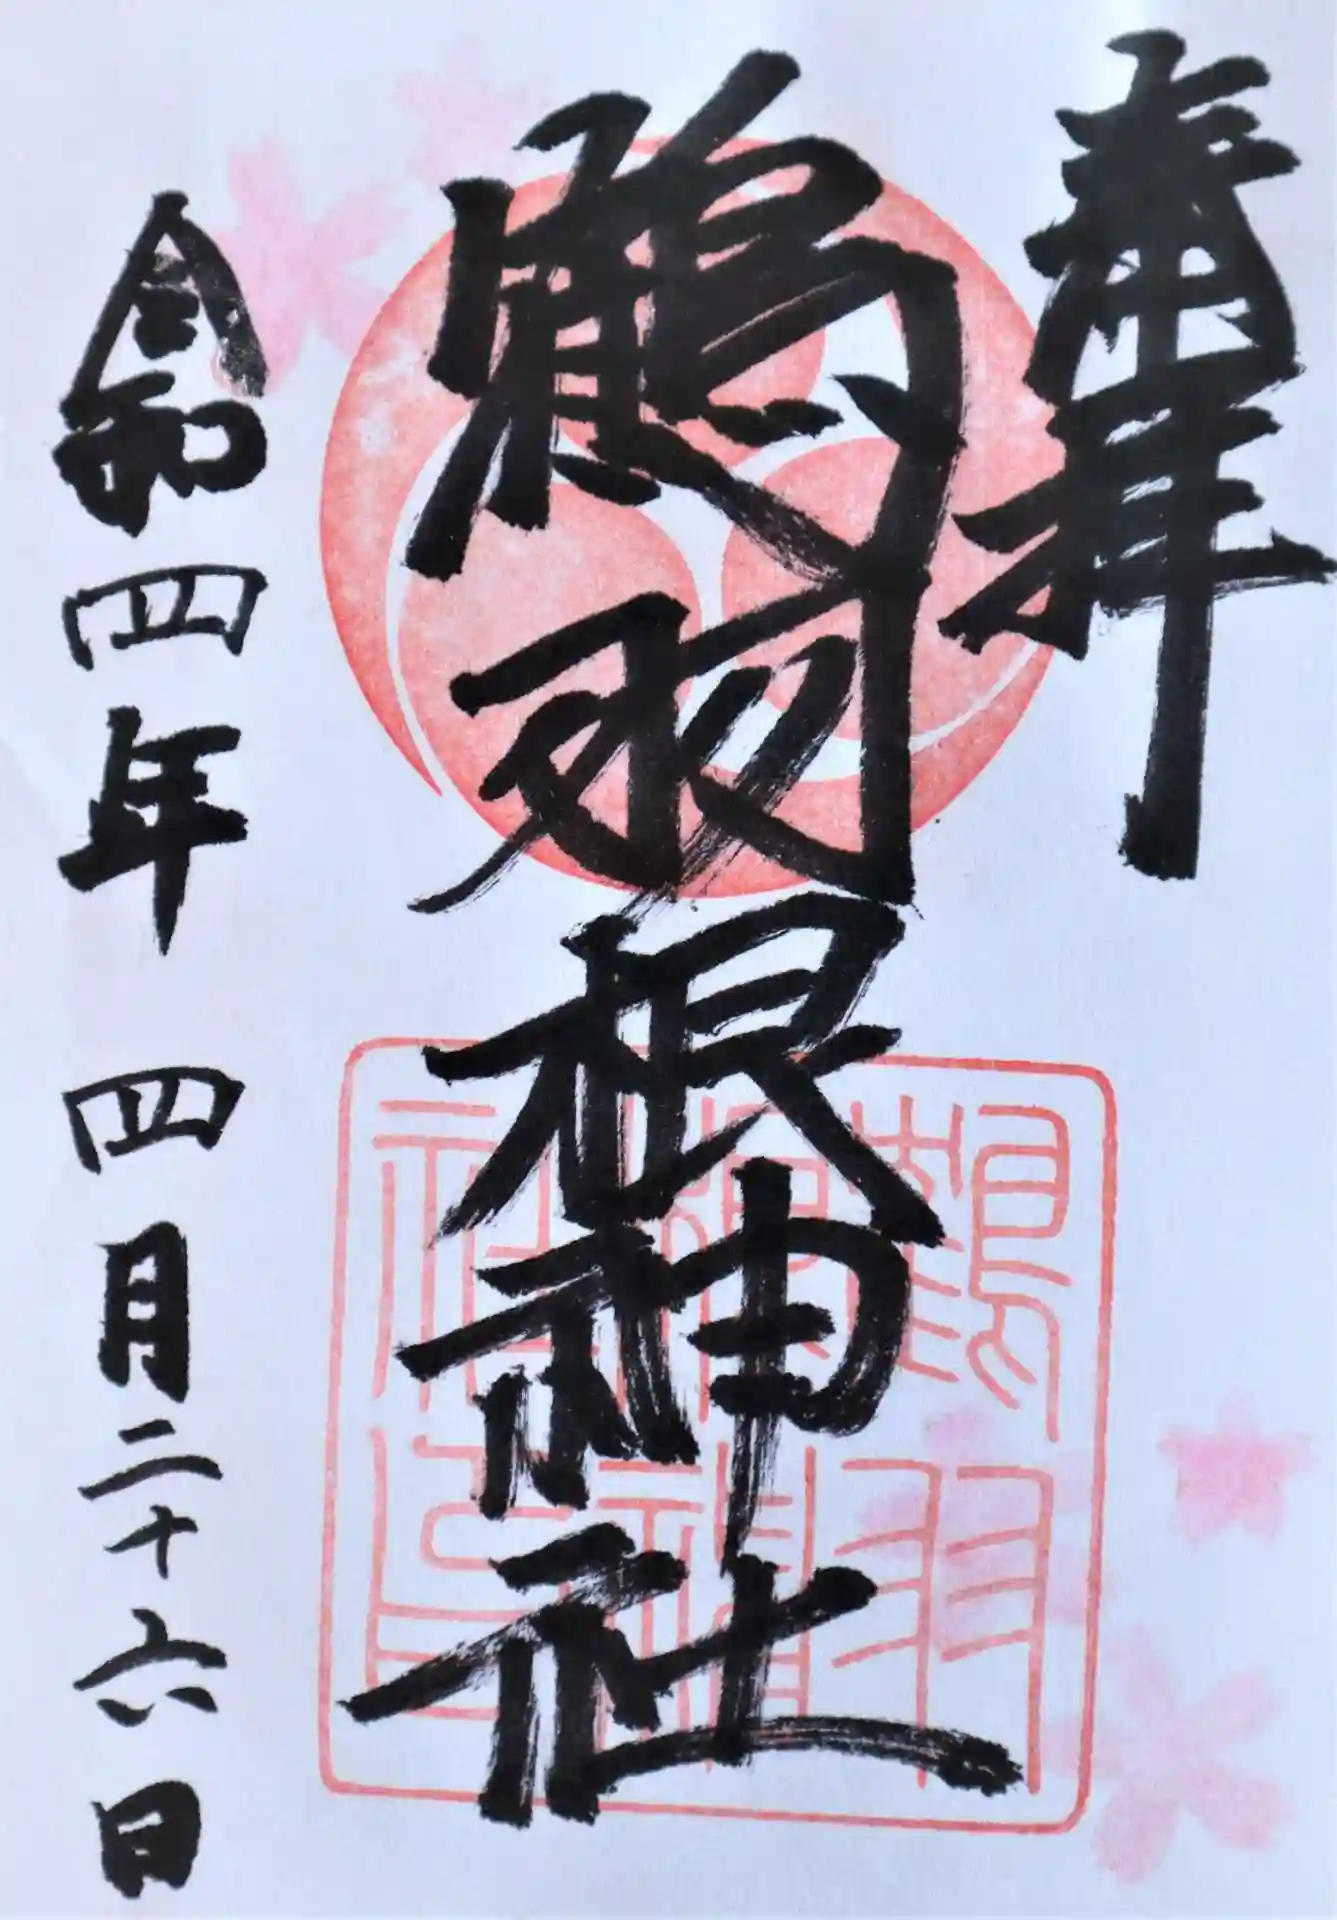 奉拝
鶴羽根神社
令和四年 四月二十六日
鶴羽根神社印